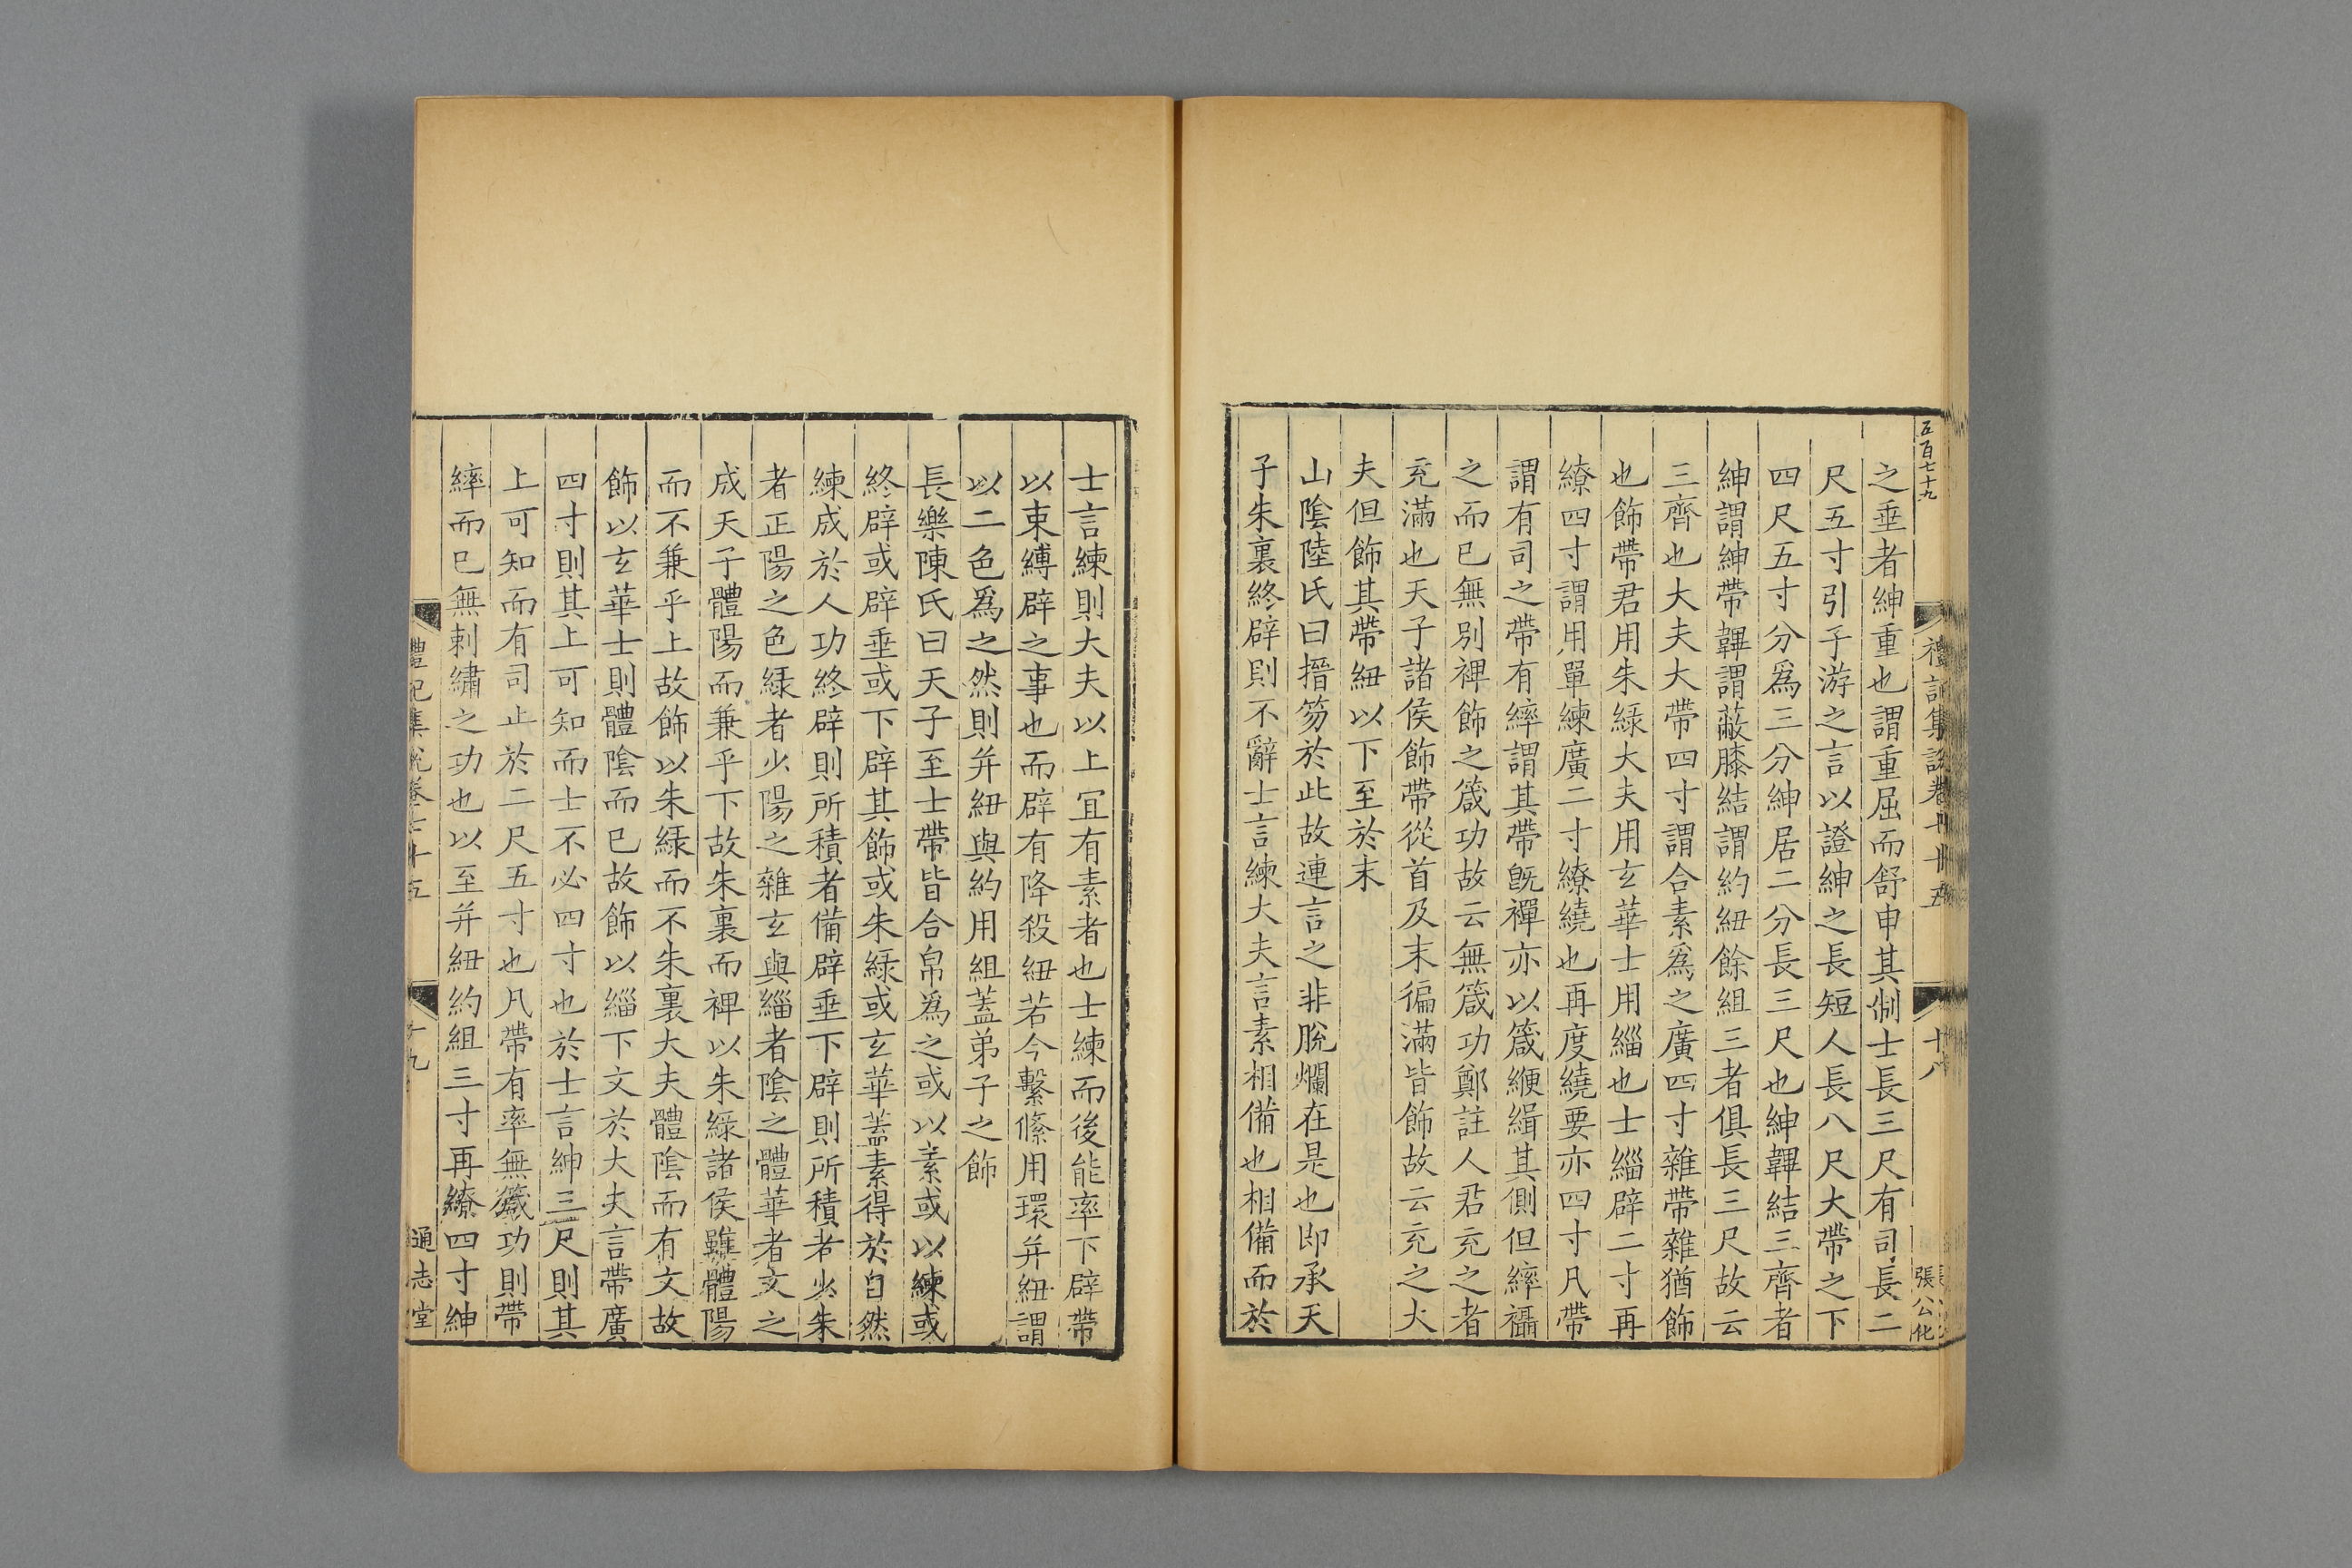 五百七十九
禮記集說卷七十五
十八
張公化
之垂者紳重也謂重屈而舒申其制士長三尺有司長二
尺五寸引子游之言以證紳之長短人長八尺大帶之下
四尺五寸分爲三分紳居二分長三尺也紳韠結三齊者
紳謂紳帶韠謂蔽膝結謂約紐餘組三者俱長三尺故云
三齊也大夫大帶四寸謂合素爲之廣四寸雜帶雜猶飾
也飾帶君用朱綠大夫用玄華士用緇也士緇辟二寸再
繚四寸謂用單練廣二寸繚繞也再度繞要亦四寸凡帶
謂有司之帶有繂謂其帶旣襌亦以箴緶緝其側但繂襵
之而巳無別裨飾之箴功故云無箴功鄭註人君充之者
充滿也天子諸侯飾帶從首及末徧滿皆飾故云充之大
夫但飾其帶紐以下至於末
山陰陸氏曰搢笏於此故連言之非脫爛在是也卽承天
子朱裏終辟則不辭士言練大夫言素相備也相備而於
士言練則大夫以上宜有素者也士練而後能率下辟帶
以束縛辟之事也而辟有降殺紐若今繫絛用環并紐謂
以二色爲之然則并紐與約用組蓋弟子之飾
長樂陳氏曰天子至士帶皆合帛爲之或以素或以練或
終辟或辟垂或下辟其飾或朱綠或玄華蓋素得於自然
練成於人功終辟則所積者備辟垂下辟則所積者少朱
者正陽之色綠者少陽之雜玄與緇者陰之體華者文之
成天子體陽而兼乎下故朱裏而裨以朱綠諸侯雖體陽
而不兼乎上故飾以朱綠而不朱裏大夫體陰而有文故
飾以玄華士則體陰而巳故飾以緇下文於大夫言帶廣
四寸則其上可知而士不必四寸也於士言紳三尺則其
上可知而有司止於二尺五寸也凡帶有率無箴功則帶
繂而巳無刺繡之功也以至并紐約組三寸再繚四寸紳
禮記集說卷七十五
十九
通志堂